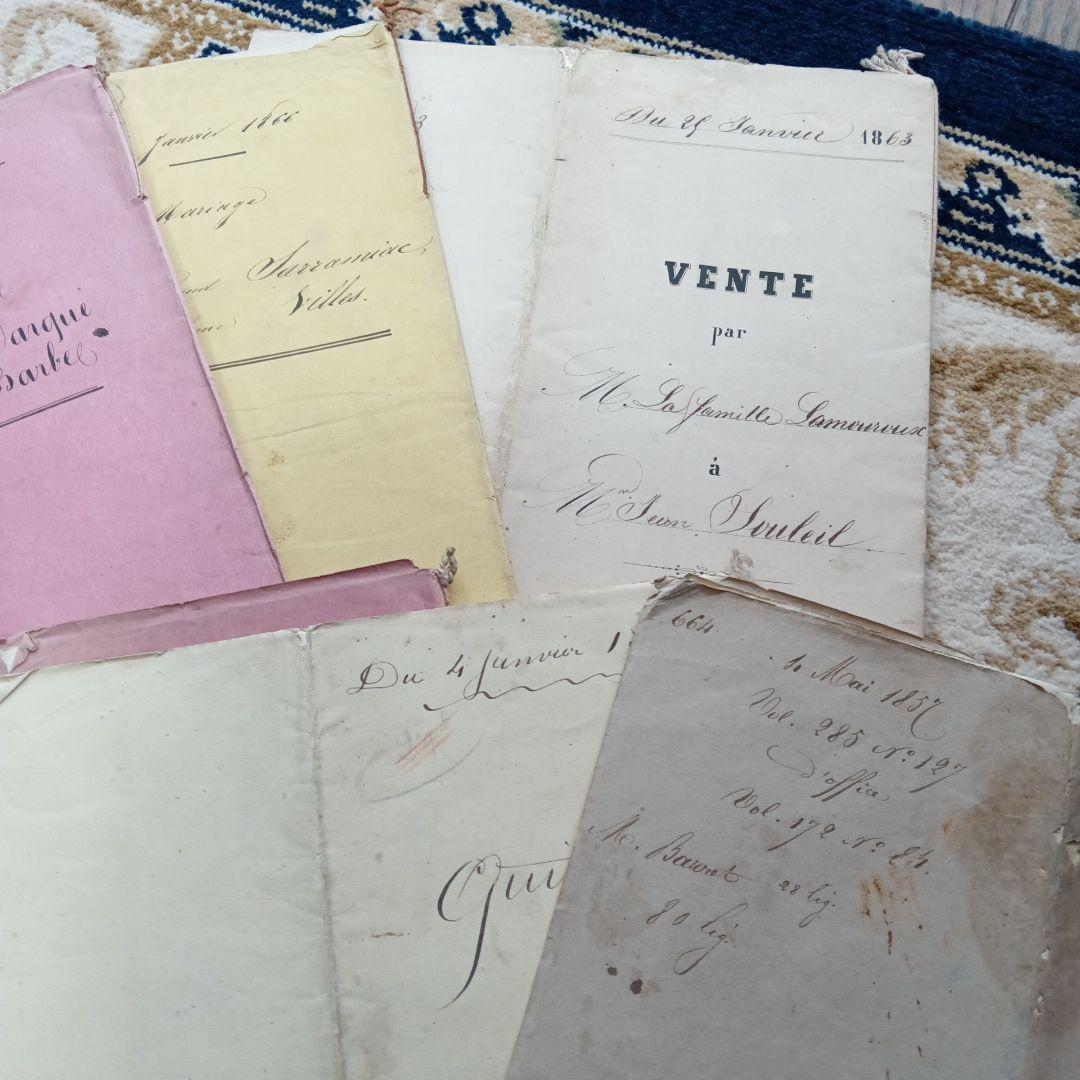 Barbe
Janvier 1866
Mariage
Sarramiac
Villes.
3
Du 25 Janvier 1863
VENTE
par
M. La famille Lamouroux
à
Mr. Jean Souleil
Du 4 Janvier 1
Qui
664
4 Mai 1857
Vol. 285 No. 127
d'office
Vol. 172 No. 84.
M. Barret 28 lig.
80 lig.